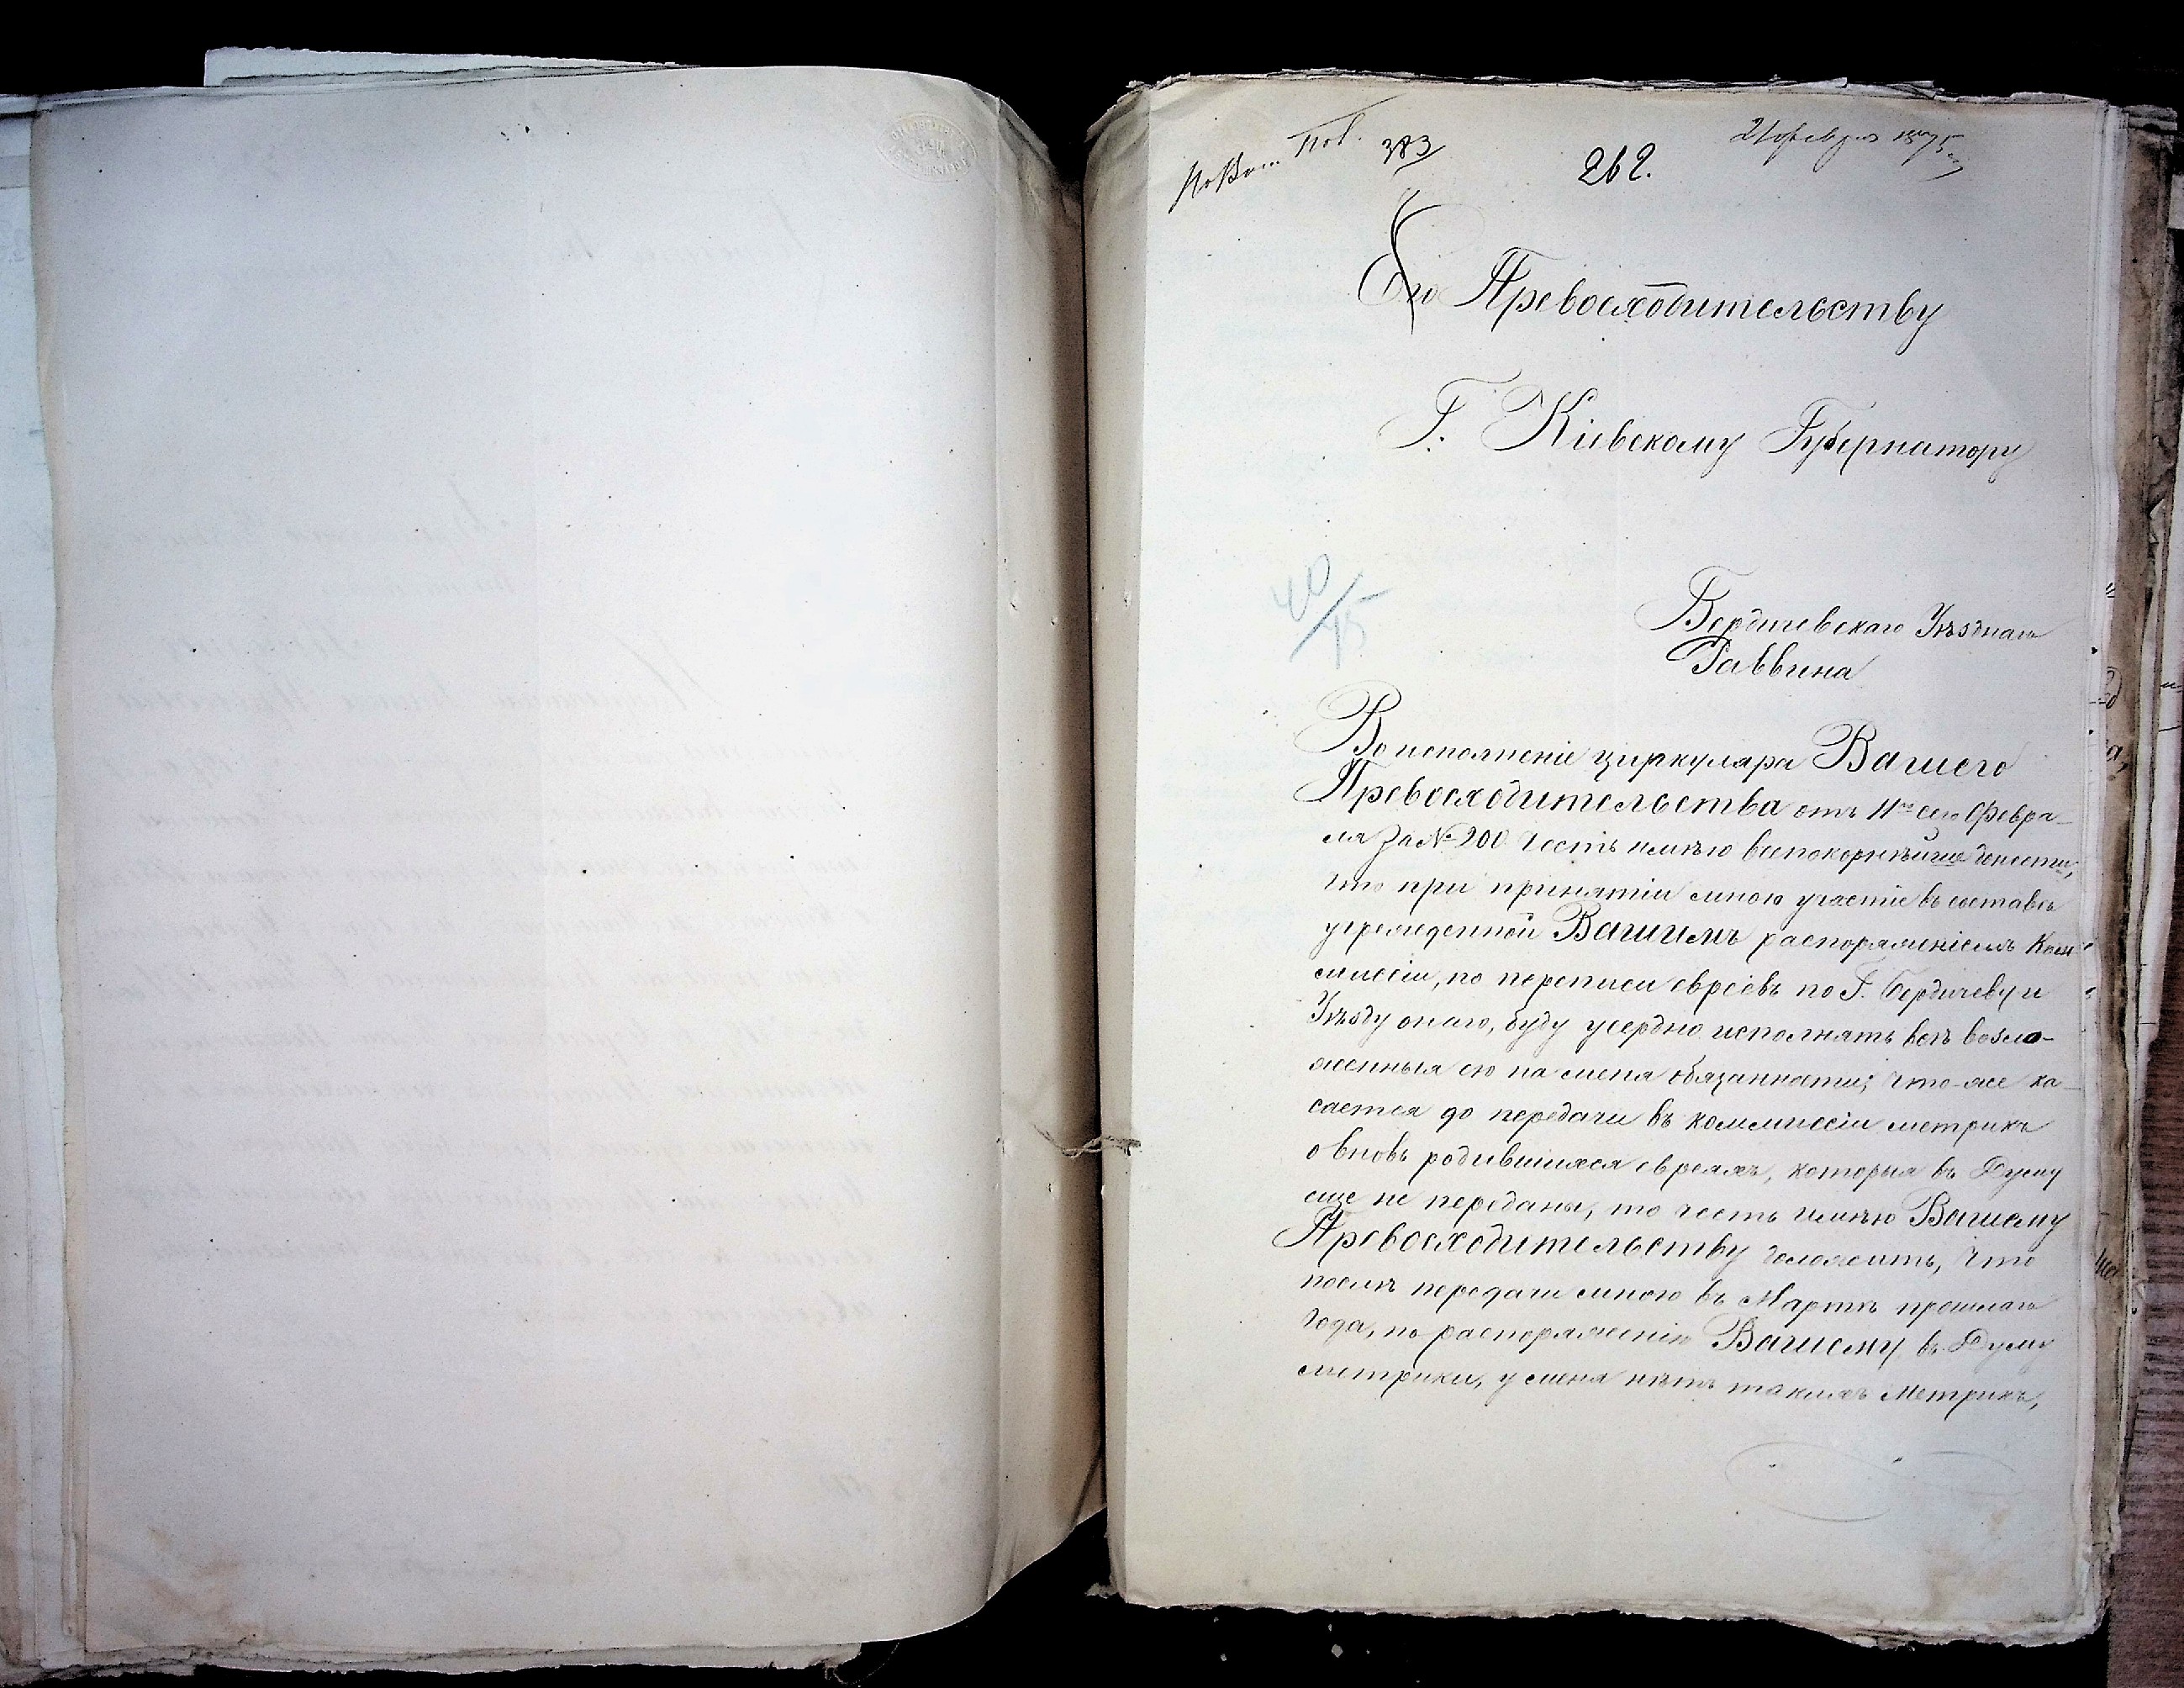 383
262.
21 февраля 1875
Его Превосходительству
Г. Кіевскому Губернатору
40/75
Бердичевскаго Уѣзднаго
Раввина
Во исполненіе циркуляра Вашего
Превосходительства отъ 11го сего Февра-
ля за № 200 честь имѣю всепокорнѣйше донести,
что при принятіи мною участіе въ составѣ
учрежденной Вашимъ распоряженіемъ Ком-
миссіи, по переписи евреевъ по Г. Бердичеву и
Уѣзду онаго, буду усердно исполнять всѣ возло-
женныя ею на меня обязанности; что-же ка-
сается до передачи въ коммиссіи метрикъ
о вновь родившихся евреяхъ, которыя въ Думу
еще не переданы, то честь имѣю Вашему
Превосходительству доложить, что
послѣ передачи мною въ Мартѣ прошлаго
года, по распоряженію Вашему, въ Думу
метрики, у меня нѣтъ такихъ метрикъ,